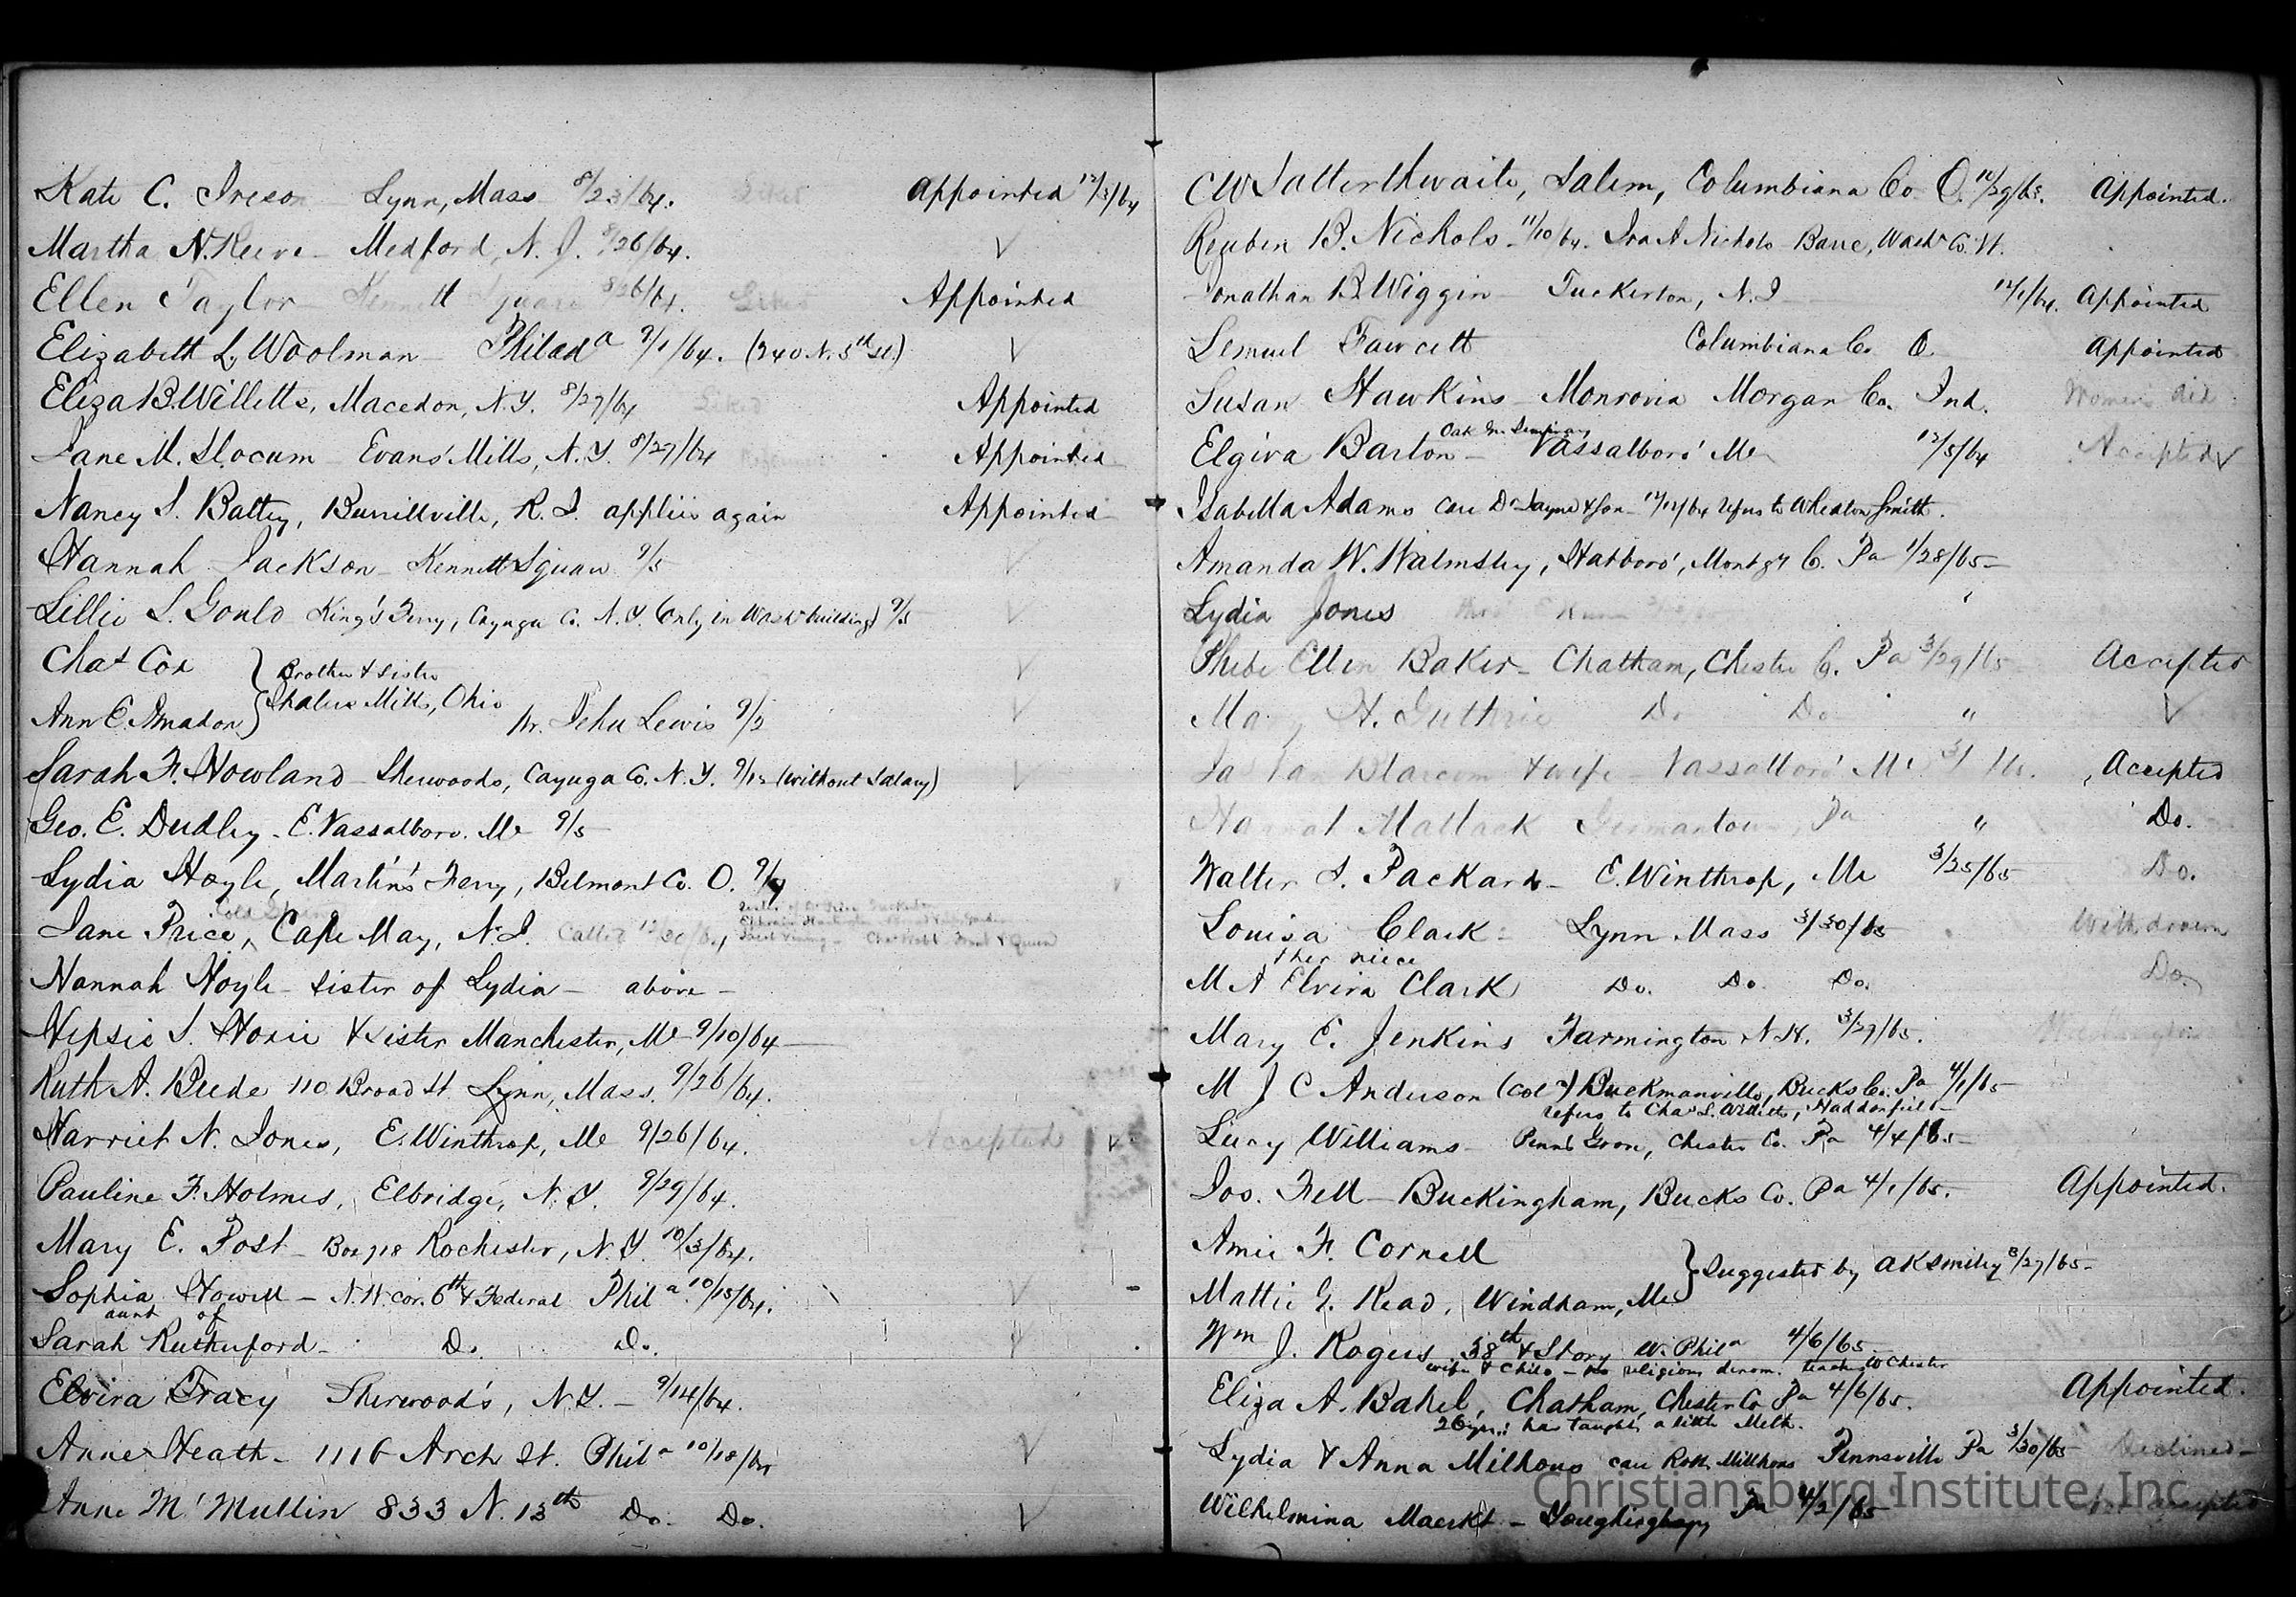 Kate C. Ireson Lynn, Mass 8/23/64. Liked Appointed 12/3/64
Martha N. Reeve - Medford, N. J. 8/26/64. √
Ellen Taylor Kennett Square 8/26/64. Liked Appointed
Elizabeth L. Woolman - Philada 9/1/64. (240 N. 5th St.) √
Eliza B. Willetts, Macedon, N. Y. 8/27/64 Liked Appointed
Jane M. Slocum - Evans' Mills, N. Y. 8/27/64 Appointed
Nancy S. Battey, Burrillville, R. I. applies again Appointed
Hannah Jackson - Kennett Square 9/5 √
Lillie S. Gould King's Ferry, Cayuga Co. N. Y. (only in Washn buildings) 9/5 √
Chas Cox } Brother & sister √
Ann E. Amadon } Mills, Ohio pr. Jehu Lewis 9/2 √
Sarah F. Howland - Sherwoods, Cayuga Co. N. Y. 9/12 (without Salary) √
Geo. E. Dudley - E. Vassalboro. Me 9/5
Lydia Hoyle, Martin's Ferry, Belmont Co. O. 9/7
Cold Spring
Jane Price, Cape May, N. J. Called 12/20/64
Hannah Hoyle - sister of Lydia - above -
Hepsie S. Hoxie & sister Manchester, Me 9/10/64
Ruth A. Beede 110 Broad St. Lynn, Mass. 9/26/64.
Harriet N. Jones, E. Winthrop, Me 9/26/64. Accepted
Pauline F. Holmes, Elbridge, N. Y. 9/29/64.
Mary E. Post - Box 718 Rochester, N. Y. 10/3/64.
Sophia Howell - N. W. cor. 6th & Federal Phila. 10/15/64. √
aunt of
Sarah Rutherford - Do. Do. √
Elvira Tracy Sherwood's, N. Y. - 9/14/64.
Anne Heath - 1116 Arch St. Phila 10/18/64 √
Anne M'Mullin 833 N. 13th Do. Do. √
C W Satterthwaite, Salem, Columbiana Co. O. Appointed.
Reuben B. Nichols - 11/10/64. Ira A Nichols Barre, Washn Co. Vt.
Jonathan B. Wiggin - Tuckerton, N. J 12/1/64. Appointed
Lemuel Fawcett Columbiana Co. O. Appointed
Susan Hawkins - Monrovia Morgan Co. Ind. Women's Aid
Oak Gr. Seminary
Elgiva Barton - Vassalboro' Me 12/5/64 Accepted √
Isabella Adams care Dr Jayne & Son - 12/12/64 refers to Wheaton Smith.
Amanda W. Walmsley, Hatboro', Montgy Co. Pa 1/28/65 -
Lydia Jones
Phebe Ellen Baker - Chatham, Chester Co. Pa 3/29/65 Accepted
Mary H. Guthrie Do Do " √
Jas Van Blarcom & wife - Vassalboro' Me Accepted
Hannah Matlack Germantown, Pa " Do.
Walter S. Packard - E. Winthrop, Me 3/25/65 Do.
Louisa Clark - Lynn Mass 3/30/65 Withdrawn
& her niece
M A Elvira Clark Do. Do. Do. Do.
Mary E. Jenkins Farmington N. H. 3/29/65.
M J C Anderson (cold) Buckmanville, Bucks Co. Pa 4/1/65
refers to Chas. L. Willits, Haddonfield -
Lucy Williams - Penns Grove, Chester Co. Pa 4/4/65 -
Jos. Fell - Buckingham, Bucks Co. Pa 4/1/65. Appointed.
Amie F. Cornell
} Suggested by A K Smiley 3/27/65 -
Mattie G. Read, Windham, Me
Wm J. Rogers 38th & Story W. Phila 4/6/65
wife & child - no religious denom. teach W Chester
Eliza A. Bahel, Chatham, Chester Co Pa 4/6/65. Appointed.
26 yrs.: has taught a little Meth.
Lydia & Anna Milhous care Robt. Milhous Pennsville Pa 3/30/65 Declined -
Wilhelmina Maerkt - Youghiogheny Pa 4/2/65 accepted
Christiansburg Institute, Inc.